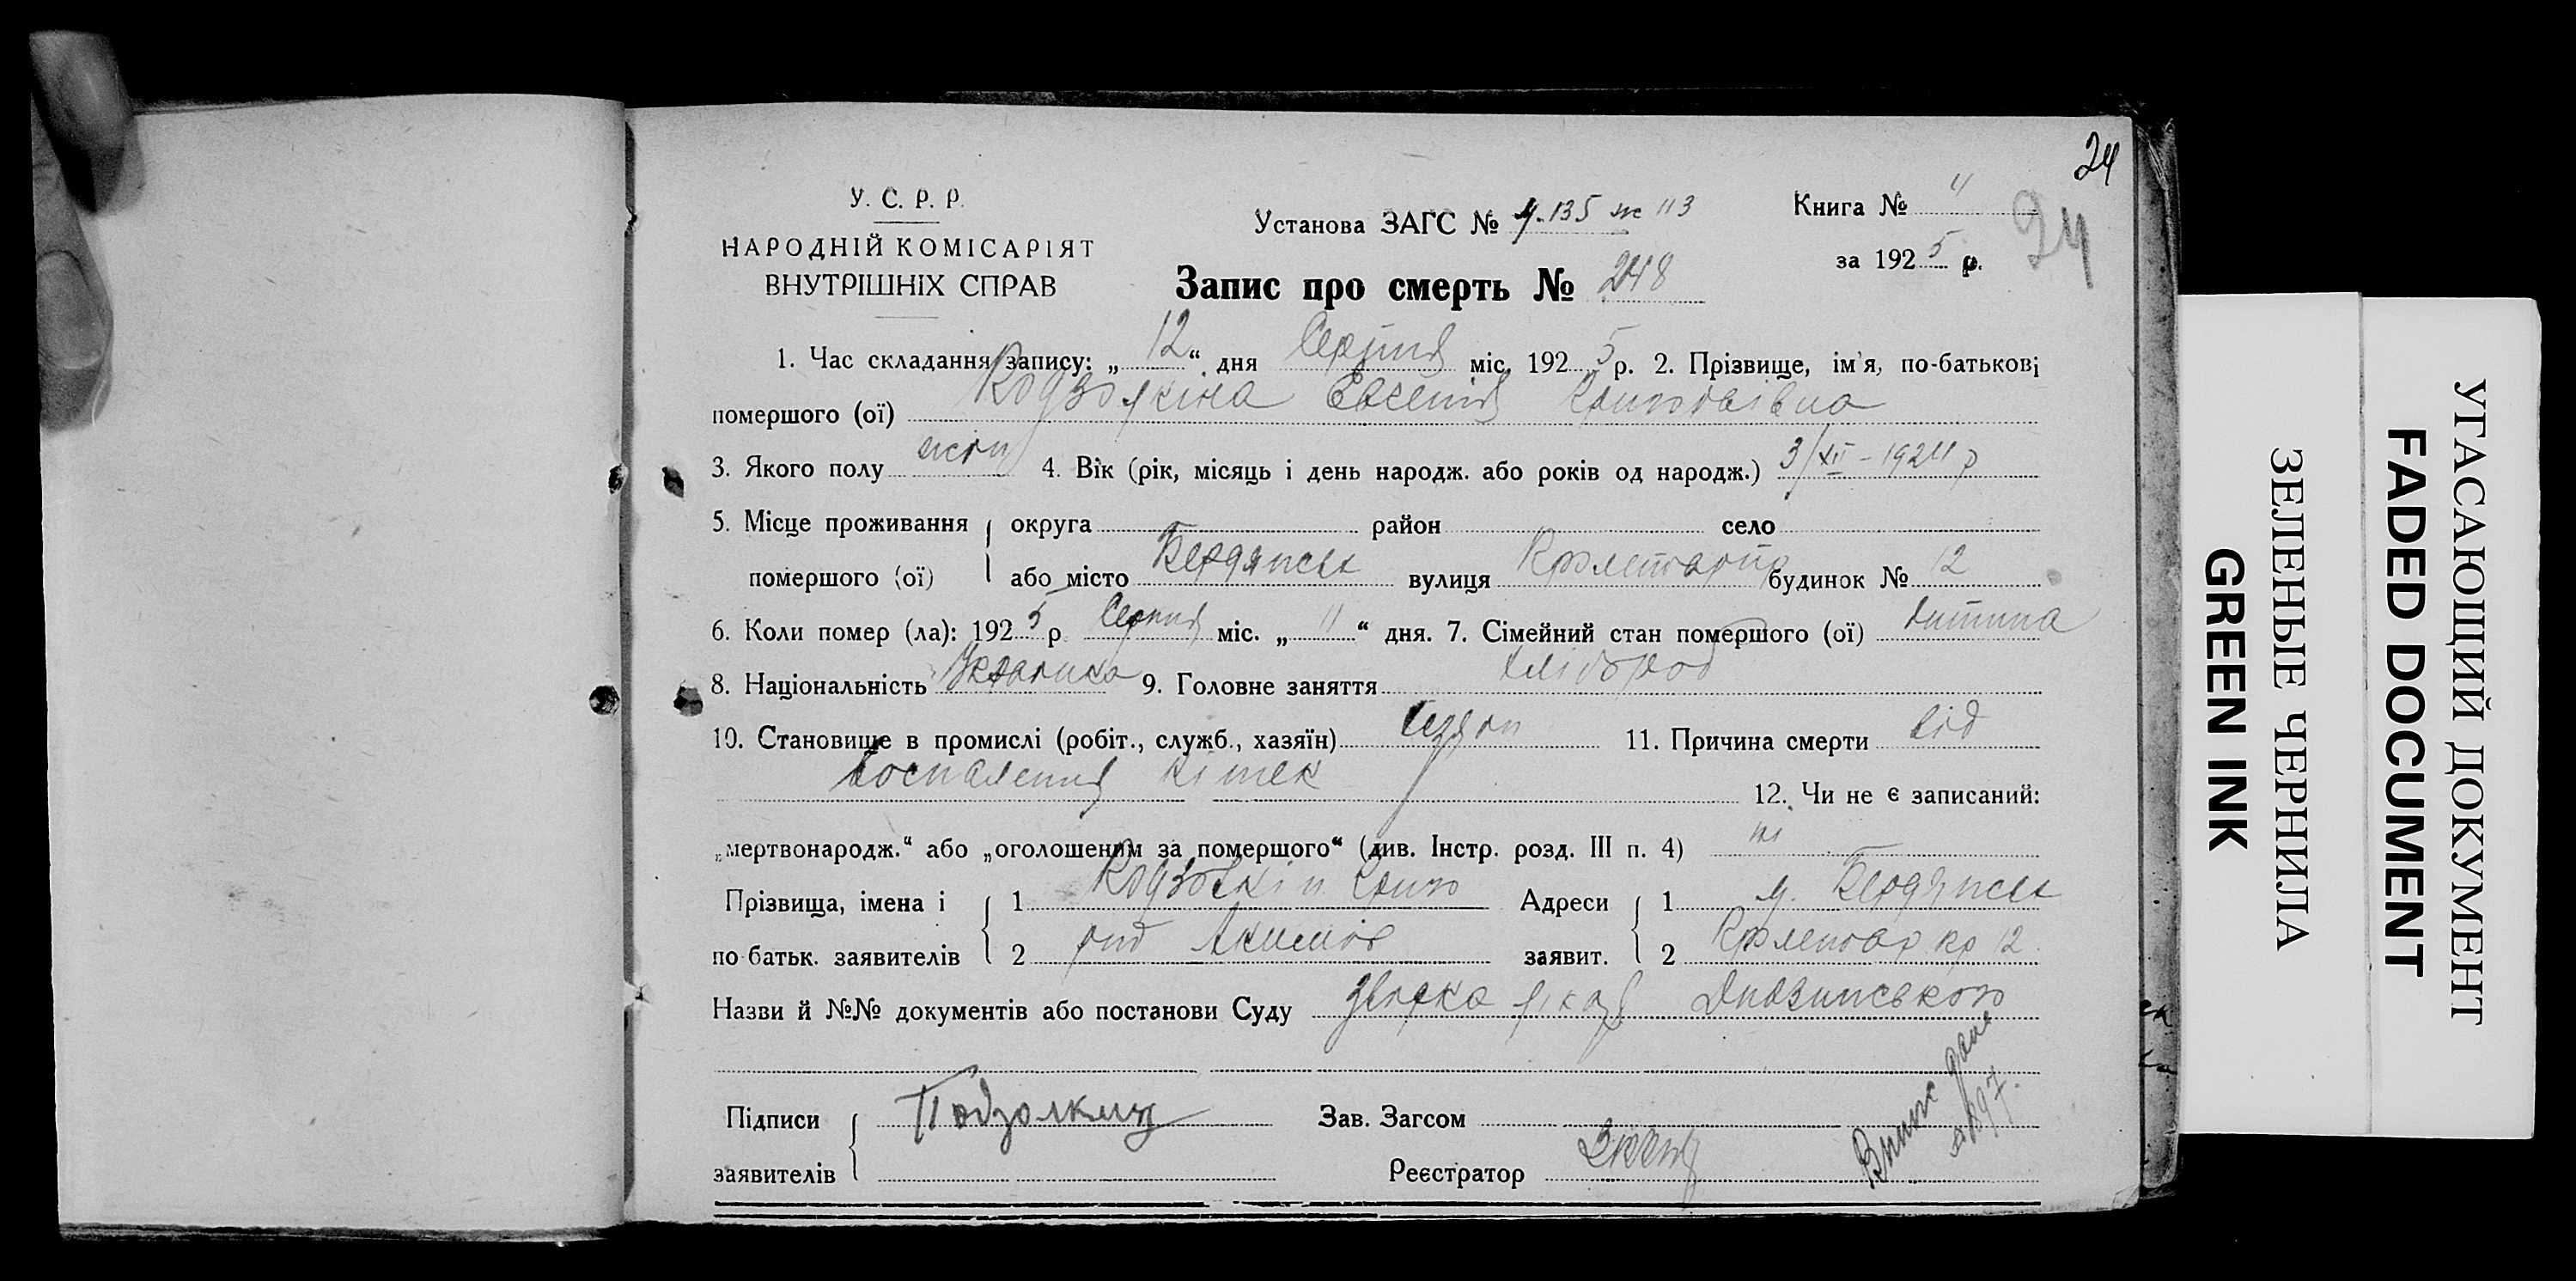 24
У. С. Р. Р.
НАРОДНІЙ КОМІСАРІЯТ
ВНУТРІШНІХ СПРАВ
Установа ЗАГС №
Книга № 4
за 1925 р.
24
Запис про смерть № 248
1. Час складання запису: „12“ дня Серпня міс. 1925 р. 2. Прізвище, ім'я, по-батькові
помершого (ої) Євгенія Григорівна
3. Якого полу жін 4. Вік (рік, місяць і день народж. або років од народж.) 3/XII - 1924 р
5. Місце проживання округа район село
помершого (ої) або місто Бердянськ вулиця будинок № 12
6. Коли помер (ла): 1925 р Серпня міс. „11“ дня. 7. Сімейний стан помершого (ої) дитина
8. Національність Українка 9. Головне заняття хлібороб
10. Становище в промислі (робіт., служб., хазяїн) 11. Причина смерти від
воспаления кишек
12. Чи не є записаний:
„мертвонародж.“ або „оголошеним за помершого“ (див. Інстр. розд. III п. 4) ні
Прізвища, імена і 1 Григо Адреси 1 м. Бердянськ
по батьк. заявителів 2 рій Акимов заявит. 2 12
Назви й №№ документів або постанови Суду
Підписи Подзолкин Зав. Загсом
заявителів Реєстратор
УГАСАЮЩИЙ ДОКУМЕНТ
FADED DOCUMENT
ЗЕЛЕНЫЕ ЧЕРНИЛА
GREEN INK